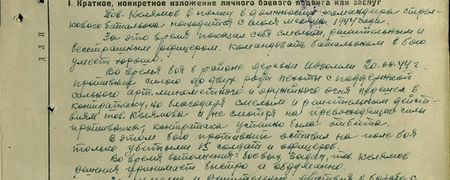 I. Краткое, конкретное изложение личного боевого подвига или заслуг
Тов. в полку в должности командира стрел-
кового батальона находится с июля месяца 1944 года.
За это время показал себя смелым, решительным и
бесстрашным офицером. Командовать батальоном в бою
умеет хорошо.
Во время боя в районе деревни 20.00.44 г.
противник силою до двух рот пехоты с поддержкой
сильного арт. минометного и оружейного огня перешел в
контратаку, но благодаря смелым и решительным дейст-
виям тов. и не смотря на превосходящие силы
противника, контратака успешно была отбита.
В этом бою противник оставил на поле боя
только убитыми 15 солдат и офицеров.
Во время выполнения боевых задач, тов.
решения принимает быстро и обдуманно.
решительные действия в боях с